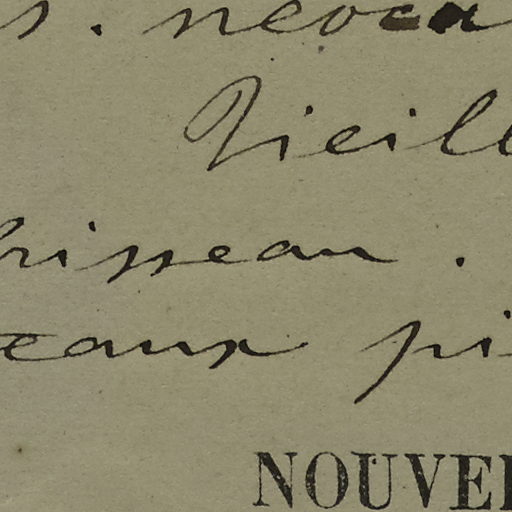 s. neoca
Vieill
risseau.
eaux pi
NOUVEL